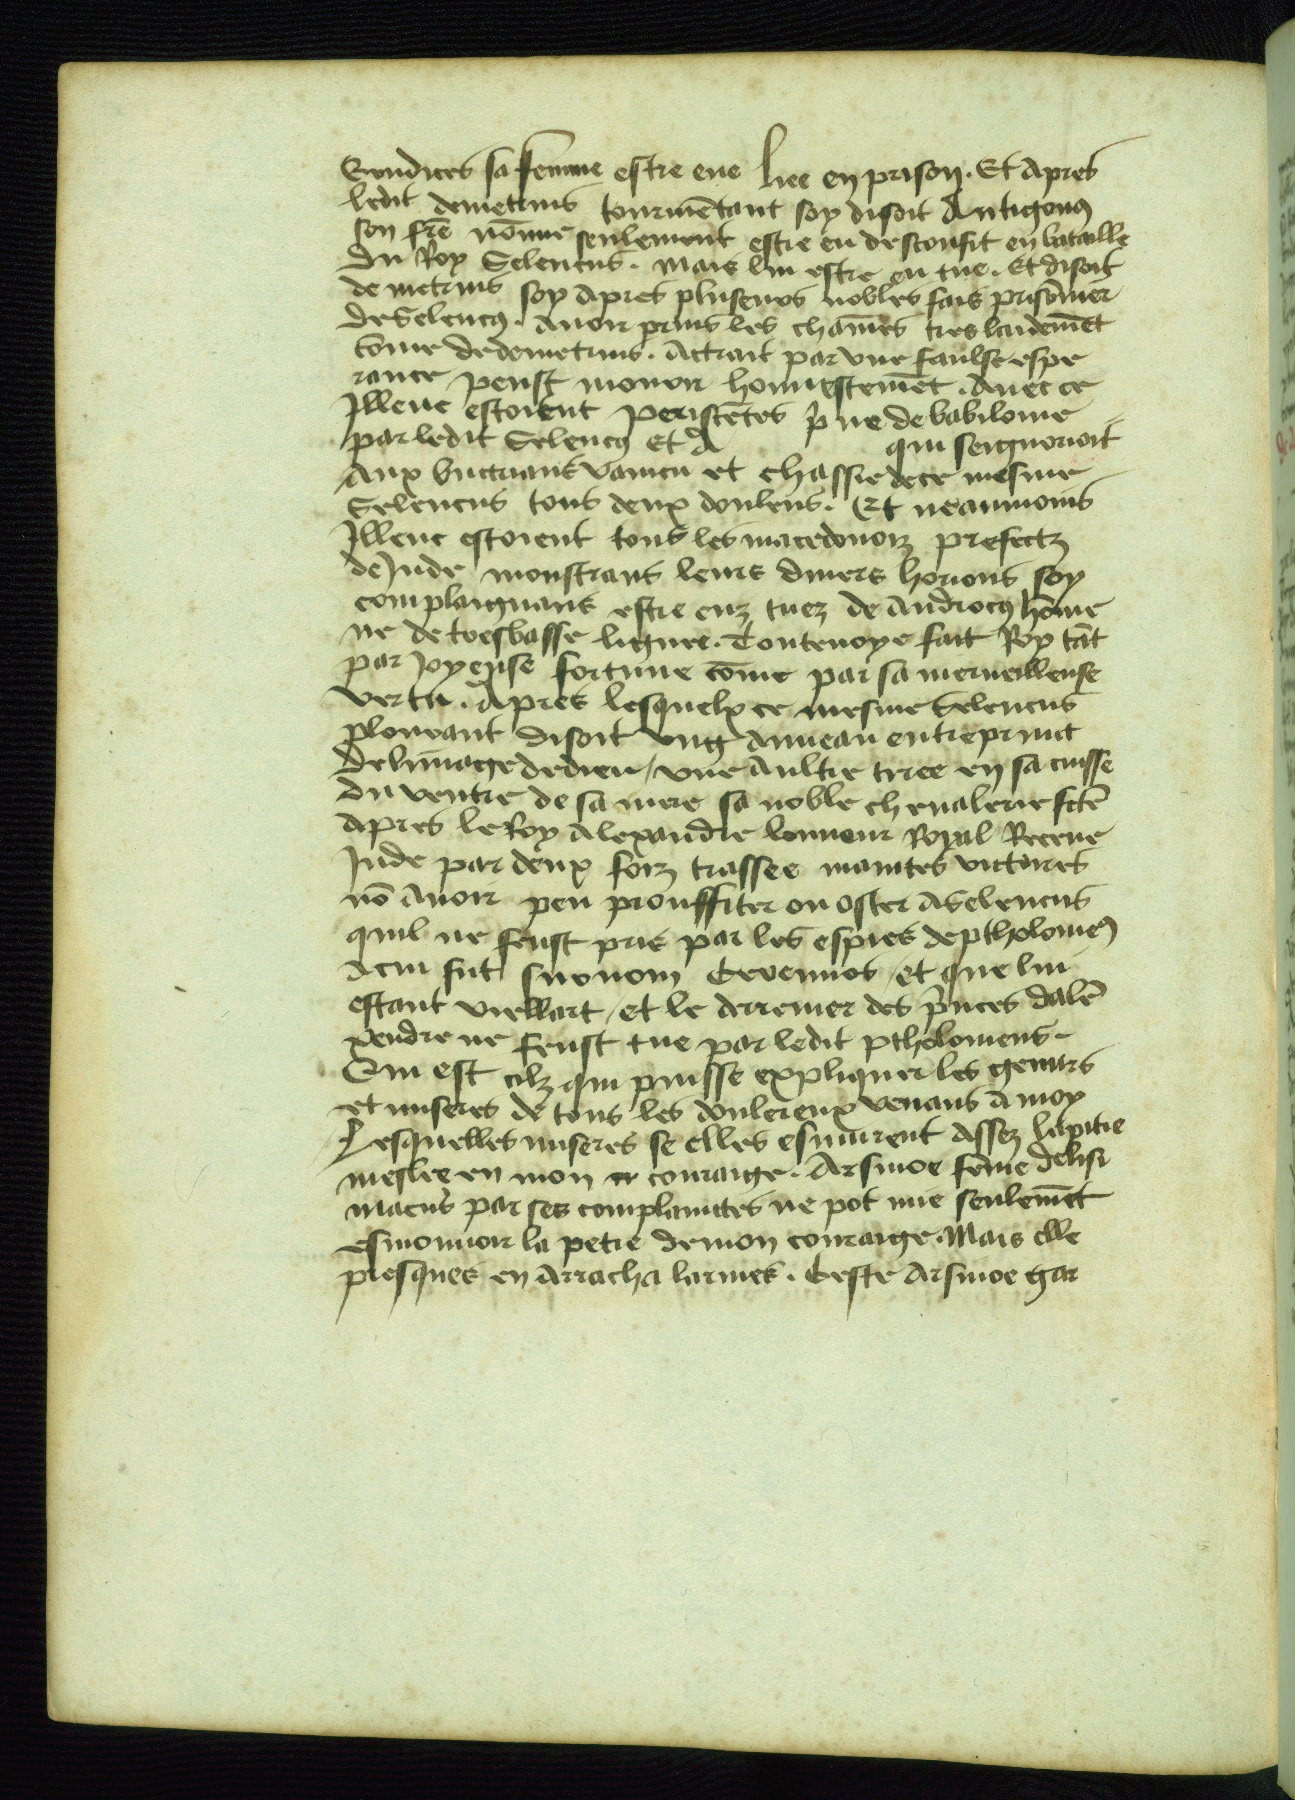 Erudices sa femme estre eue liee en prison. Et apres
ledit demetrius tourmētant soy disoit Antigonꝰ
son fr̄e nōmie seulement estre eu desconfit en bataille
du Roy Seleucus. mais lui estre eu tue. Et disoit
demetrius soy apres pluseurs nobles fais prisōnier
de Seleucꝰ. auoir prins les chaines tres laidemēt
cōme de demetrius. Actrait par vne faulse espe
rance peust mourir honnestemēt. auec ce
Illeuc estoient peristētes p̄nce de babilonie
par ledit Seleucꝰ et A qui seignorioit
aux buctrians vaincu et chassie de ce mesme
Seleucus tous deux douleus. Et neanmoins
Illeuc estoient tous les macedonoiz prefectz
de Jnde monstrans leurs diuers horions soy
complaignans estre euz tuez de Androcꝰ hōme
ne de tresbasse lignee. Toutenoye fait Roy tāt
par Joyeuse fortune cōme par sa merueilleuse
vertu. Apres lesquelx ce mesme Seleucus
plourant disoit vng anneau entreprinct
de lymage de dieu / vne aultre tiree en sa cuisse
du ventre de sa mere sa noble cheualerie fctē
apres le Roy Alexandre lonneur Royal Receue
Jnde par deux foiz trassee maintes victores
nō auoir peu prouffiter ou oster a Seleucus
quil ne feust pris par les espies de ptholomeꝰ
a cui fut surnom Cevennos / et que lui
estant viellart / et le derrenier des p̄nces dalē
xendre ne feust tue par ledit ptholomeus.
Qui est cilz qui puisse expliquer les gemirs
et miseres de tous les doulereux venans a moy
Lesquelles miseres se elles esmurent assez la pitie
meslee en mon cr couraige. Arsinoe fēme de lisi
macus par ses complaintes ne pot mie seulemēt
esmouuoir la petie de mon couraige. Mais elle
presques en arracha larmes. Ceste Arsinoe gar